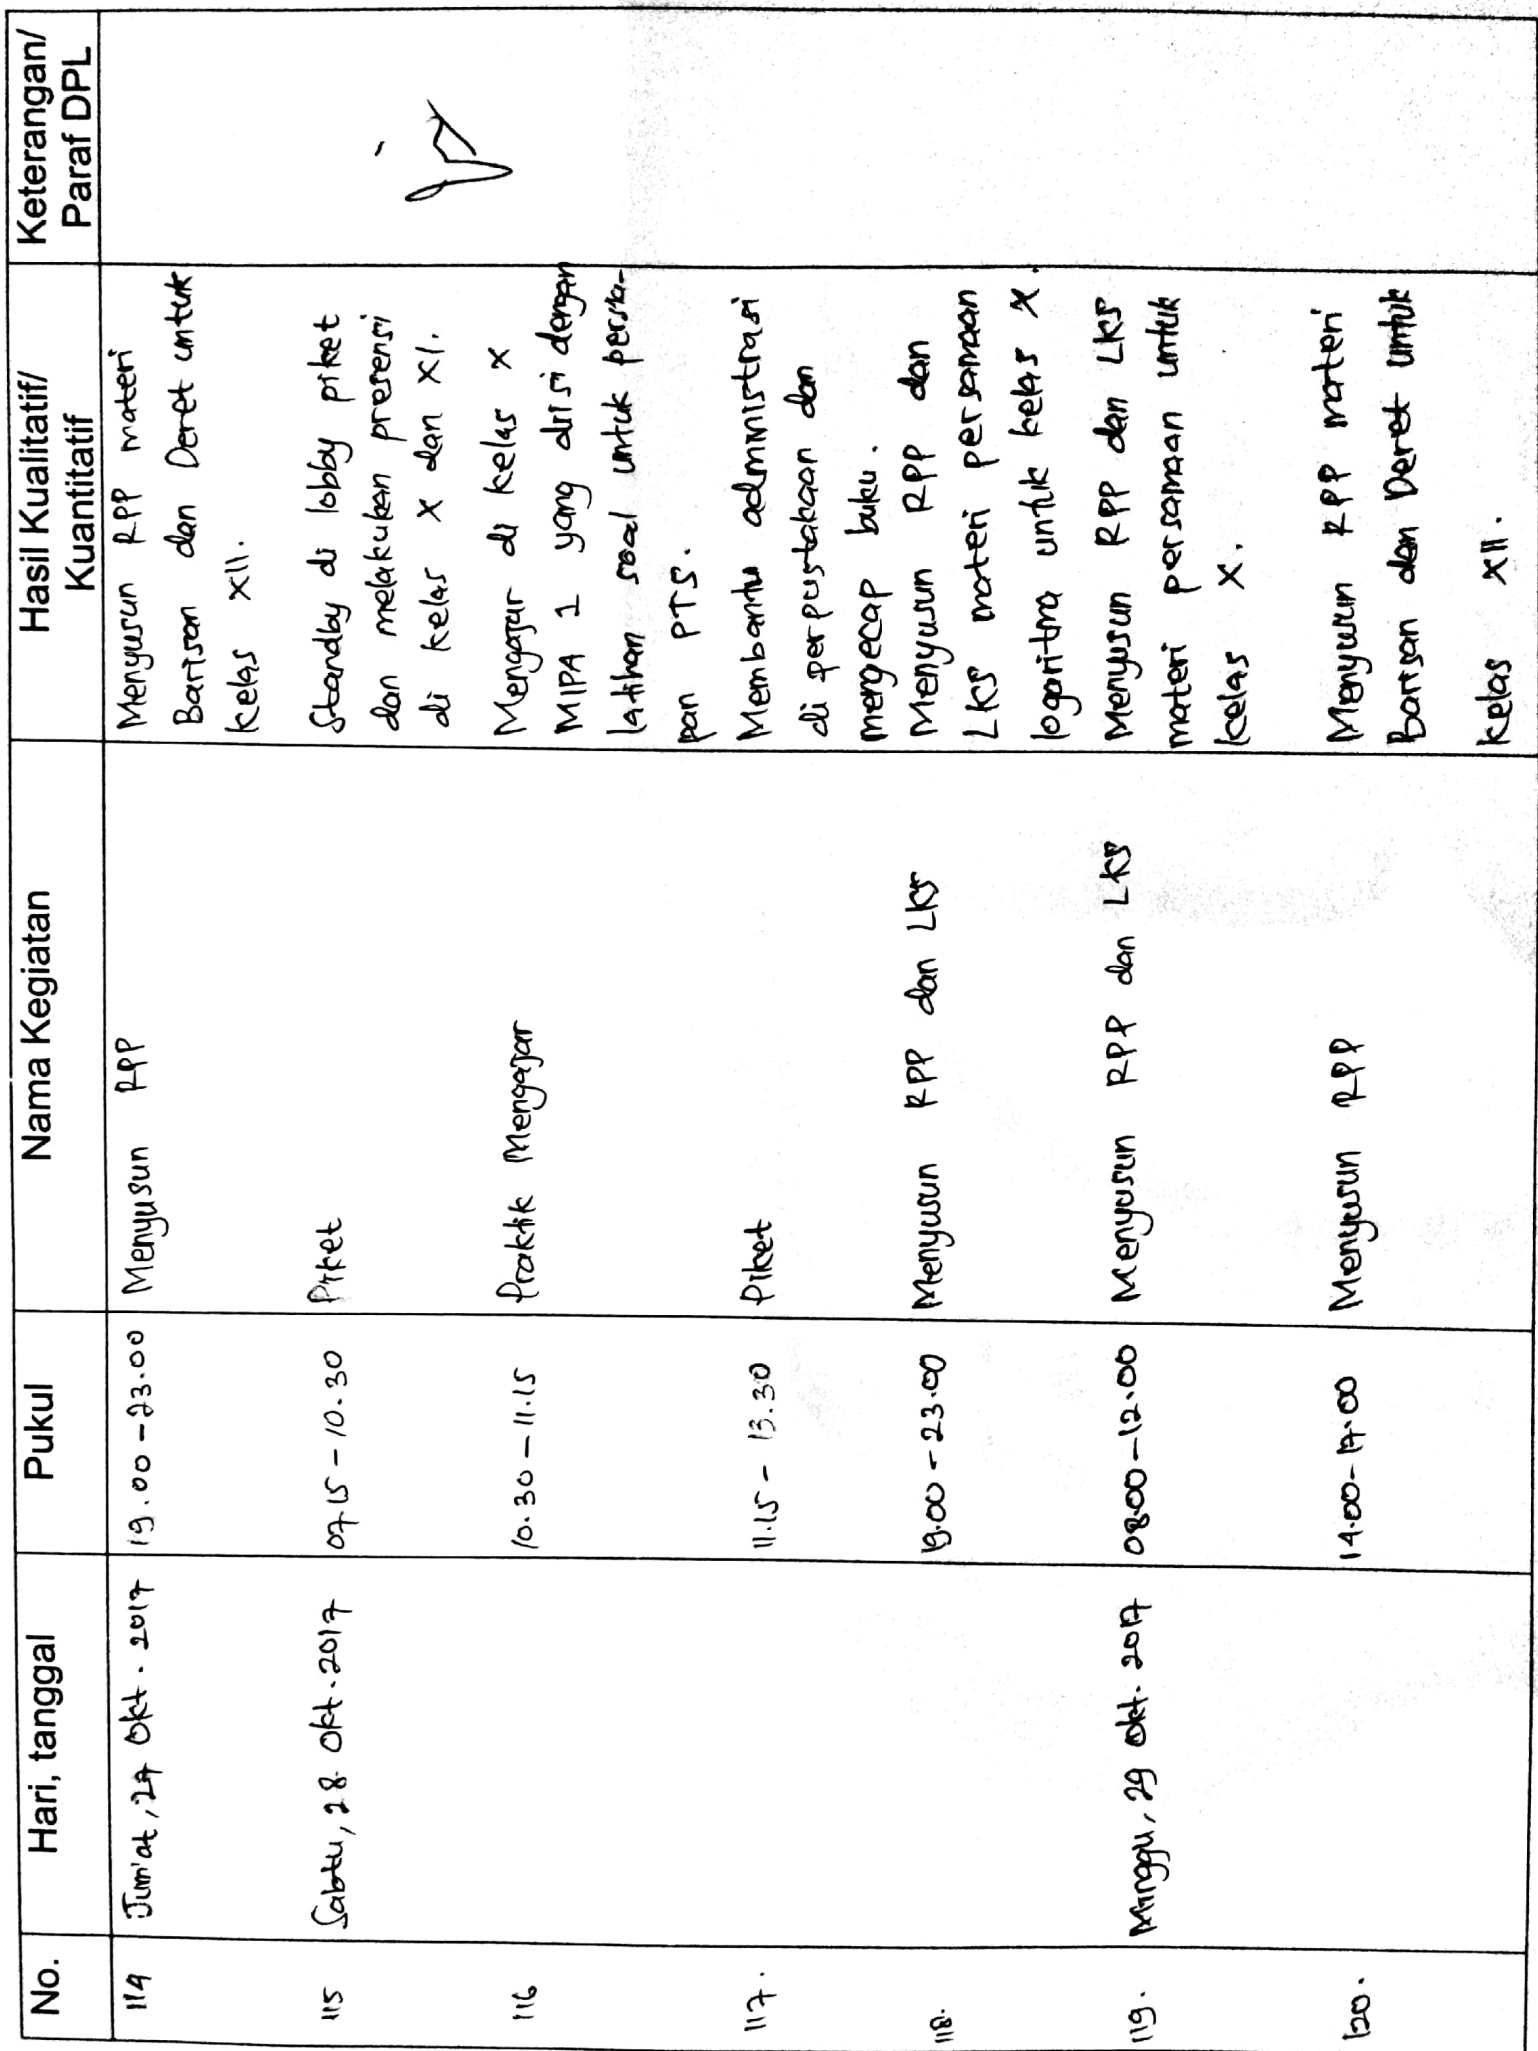 No. Hari, tanggal Pukul Nama Kegiatan Hasil Kualitatif/ Kuantitatif Keterangan/ Paraf DPL
114 Jum'at, 27 Okt. 2017 19.00 - 23.00 Menyusun RPP Menyusun RPP materi
Barisan dan Deret untuk
kelas XII.
115 Sabtu, 28 Okt. 2017 07.15 - 10.30 Piket Standby di lobby piket
dan melakukan presensi
di kelas X dan XI.
116 10.30 - 11.15 Praktik Mengajar Mengajar di kelas X
MIPA 1 yang diisi dengan
latihan soal untuk persia-
pan PTS.
117. 11.15 - 13.30 Piket Membantu administrasi
di perpustakaan dan
mengecap buku.
118. 19.00 - 23.00 Menyusun RPP dan LKS Menyusun RPP dan
LKS materi persamaan
logaritma untuk kelas X.
119. Minggu, 29 Okt. 2017 08.00 - 12.00 Menyusun RPP dan LKS Menyusun RPP dan LKS
materi persamaan untuk
kelas X.
120. 14.00 - 17.00 Menyusun RPP Menyusun RPP materi
Barisan dan Deret untuk
kelas XII.